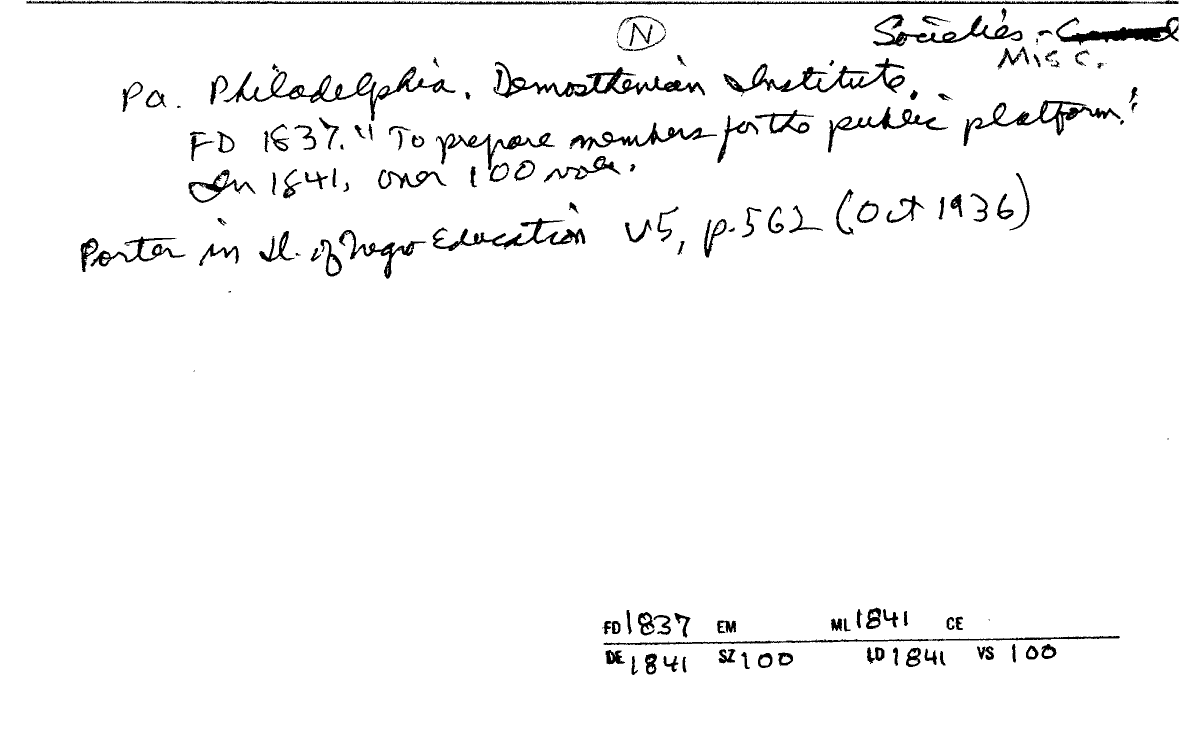 N
Societies -
Misc.
Pa. Philadelphia. Demosthenian Institute.
FD 1837. "To prepare members for the public platform."
In 1841, over 100 vols.
Porter in Jl. of Negro Education v5, p.562 (Oct 1936)
FD 1837 EM ML 1841 CE
DE 1841 SZ 100 LD 1841 VS 100